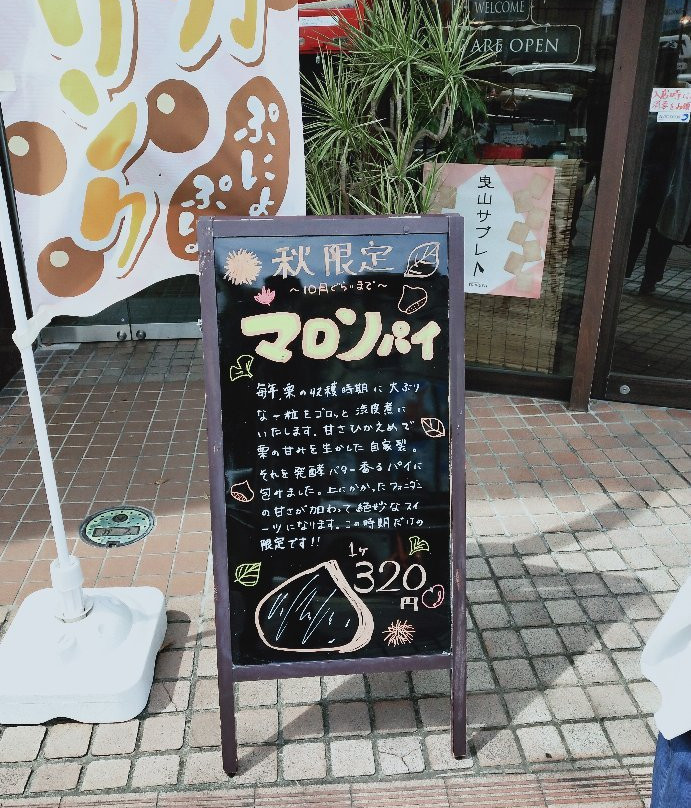 WELCOME
ARE OPEN
ぷにょ
ぷり
曳山サブレ
秋限定
～10月ぐらいまで～
マロンパイ
毎年、栗の収穫時期に大ぶり
な一粒をゴロッと渋皮煮に
いたします。甘さひかえめで
栗の甘みを生かした自家製。
それを発酵バター香るパイに
包みました。上にかかったフォンダン
の甘さが加わって絶妙なスイ
ーツになります。この時期だけの
限定です!!
1ヶ
320
円